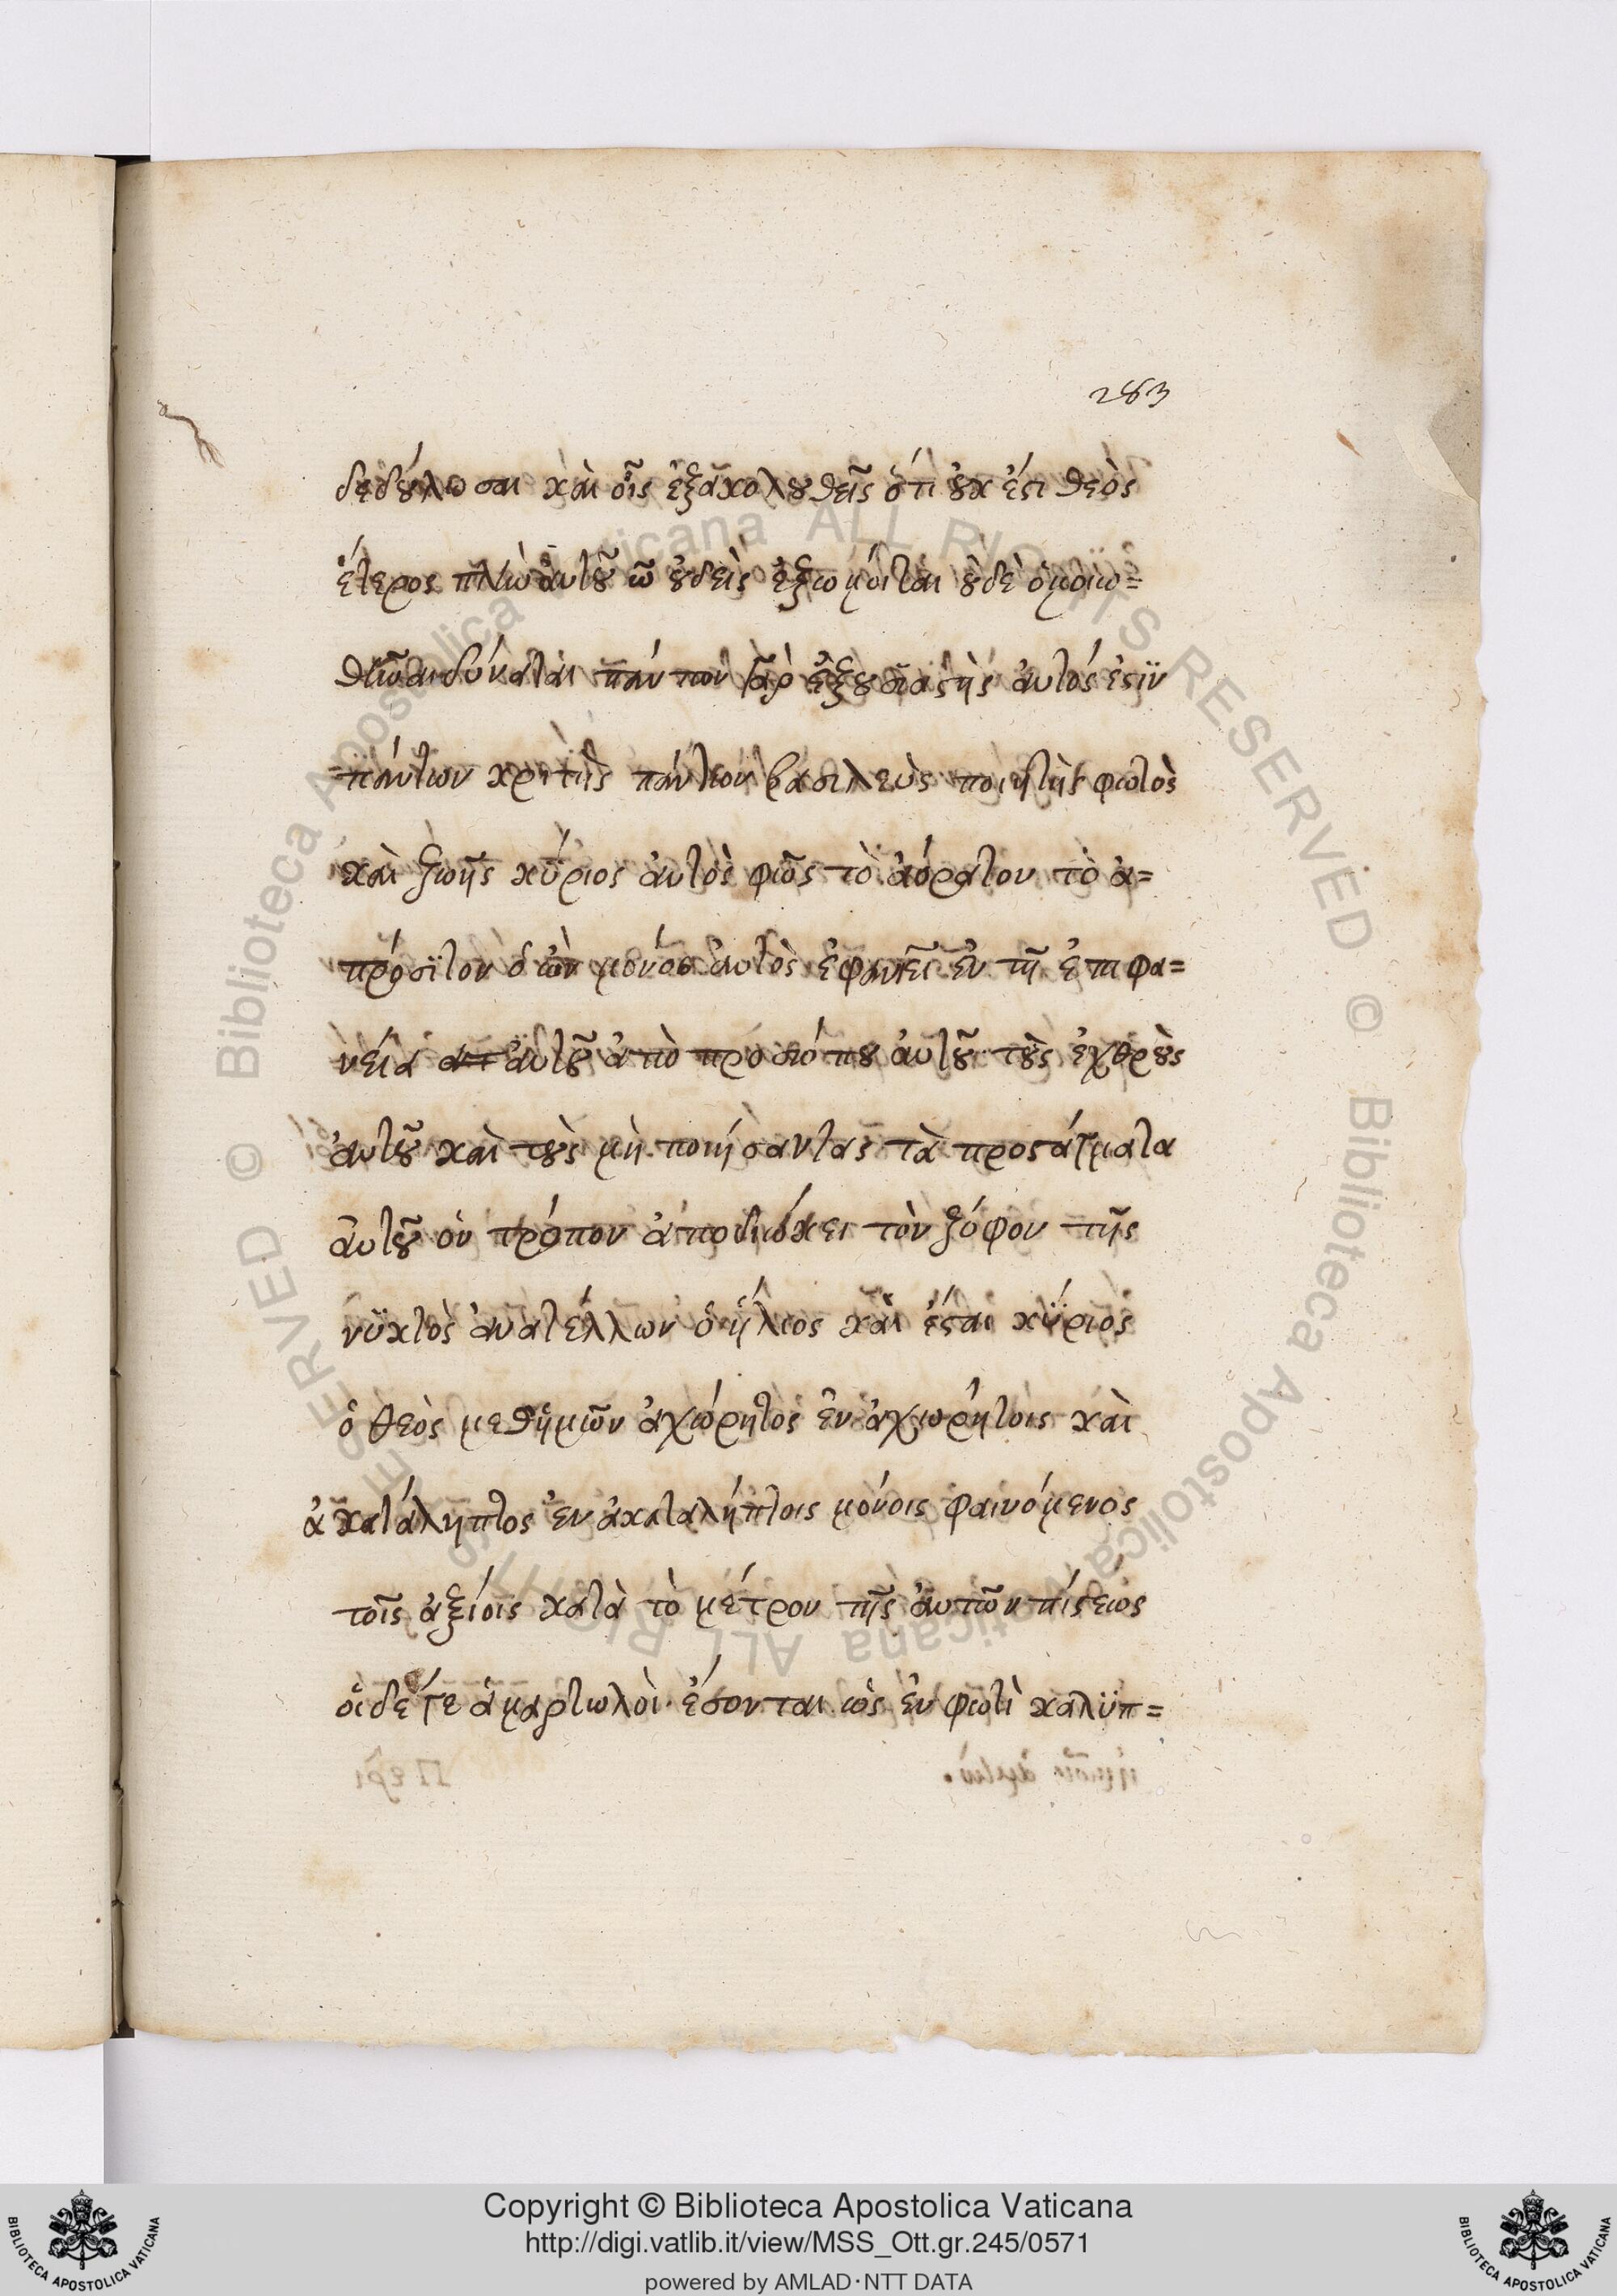 283
δεδούλωσαι καὶ οἷς ἐξακολουθεῖς ὅτι οὐκ ἔστι θεὸς
ἕτερος πλὴν αὐτοῦ ᾧ οὐδεὶς ἐξωμόιται οὐδὲ ὁμοιω=
θῆναι δύναται πάντων γὰρ ἐξουσιαστὴς αὐτός ἐστϊν
πάντων κριτὴς πάντων βασιλεὺς ποιητὴς φωτὸς
καὶ ζωῆς κύριος αὐτὸς φῶς τὸ ἀόρατον τὸ ἀ=
πρόσϊτον ὁ ὢν μόνος αὐτὸς ἐφανεῖ ἐν τῇ ἐπιφα=
νείᾳ αὐτοῦ ἀπὸ προσώπου αὐτοῦ τοὺς ἐχθροὺς
αὐτοῦ καὶ τοὺς μὴ ποιήσαντας τὰ προστάγματα
αὐτοῦ ὃν τρόπον ἀποδιώκει τὸν ζόφον τῆς
νϋκτὸς ἀνατέλλων ὁ ἥλιος καὶ ἔσται κύριος
ὁ θεὸς μεθἡμῶν ἀχώρητος ἐν ἀχωρήτοις καὶ
ἀκατάληπτος ἐν ἀκαταλήπτοις μόνοις φαινόμενος
τοῖς ἀξίοις κατὰ τὸ μέτρον τῆς αὐτῶν πίστεως
οἱ δέ γε ἁμαρτωλοὶ· ἔσονται ὡς ἐν φωτὶ καλϋπ=
© Biblioteca Apostolica Vaticana ALL RIGHTS RESERVED
© Biblioteca Apostolica Vaticana ALL RIGHTS RESERVED
Copyright © Biblioteca Apostolica Vaticana
http://digi.vatlib.it/view/MSS_Ott.gr.245/0571
powered by AMLAD·NTT DATA
BIBLIOTECA APOSTOLICA VATICANA
BIBLIOTECA APOSTOLICA VATICANA